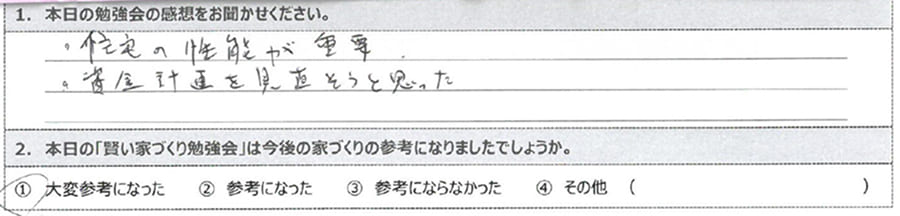 1. 本日の勉強会の感想をお聞かせください。
・住宅の性能が重要.
・資金計画を見直そうと思った
2. 本日の「賢い家づくり勉強会」は今後の家づくりの参考になりましたでしょうか。
① 大変参考になった ② 参考になった ③ 参考にならなかった ④ その他 ( )